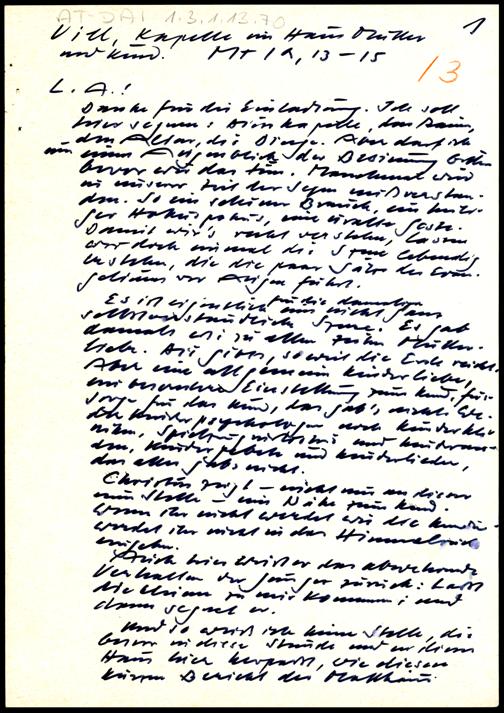 AT-DAI 1.3.1.13.70
1
Vill, Kapelle im Haus Mutter
und Kind. Mt 19, 13-15
13
L. A.!
Danke für die Einladung. Ich soll
hier segnen: Diese Kapelle, den Raum,
den Altar, die Dinge. Aber darf ich
um einen Augenblick der Besinnung bitten
bevor wir das tun. Manchmal wird
in unserer Zeit der Segen mißverstan-
den. So ein schöner Brauch, ein
Hokuspokus, eine uralte Geste.
Damit wir's recht verstehen, lassen
wir doch einmal die Szene lebendig
erstehen, die die paar Sätze des Evan-
geliums vor Augen führt.
Es ist eigentlich für die damalige
Zeit nicht ganz
selbstverständliche Szene. Es gab
damals wie zu allen Zeiten Mutter-
liebe. Die gibt's, soweit die Erde reicht.
Aber eine allgemeine Kinderliebe,
eine besondere Einstellung zum Kind, für-
sorge für das Kind, das gab's nicht. We-
der Kinderpsychologen noch Kinderkli-
niken, Spielzeug und
Kindergebete und Kinderlieder,
das alles gab's nicht.
Christus zeigt - nicht nur an dieser
einen Stelle - eine Nähe zum Kind.
Wenn ihr nicht werdet wie die Kinder
werdet ihr nicht in das Himmelreich
eingehen.
Auch hier weist er das abwehrende
Verhalten der Jünger zurück: Laßt
die Kleinen zu mir kommen; und
dann segnet er.
Und so weiß ich keine Stelle, die
besser in diese Stunde und zu diesem
Haus hier passt, wie diesen
kurzen Bericht des Matthäus.